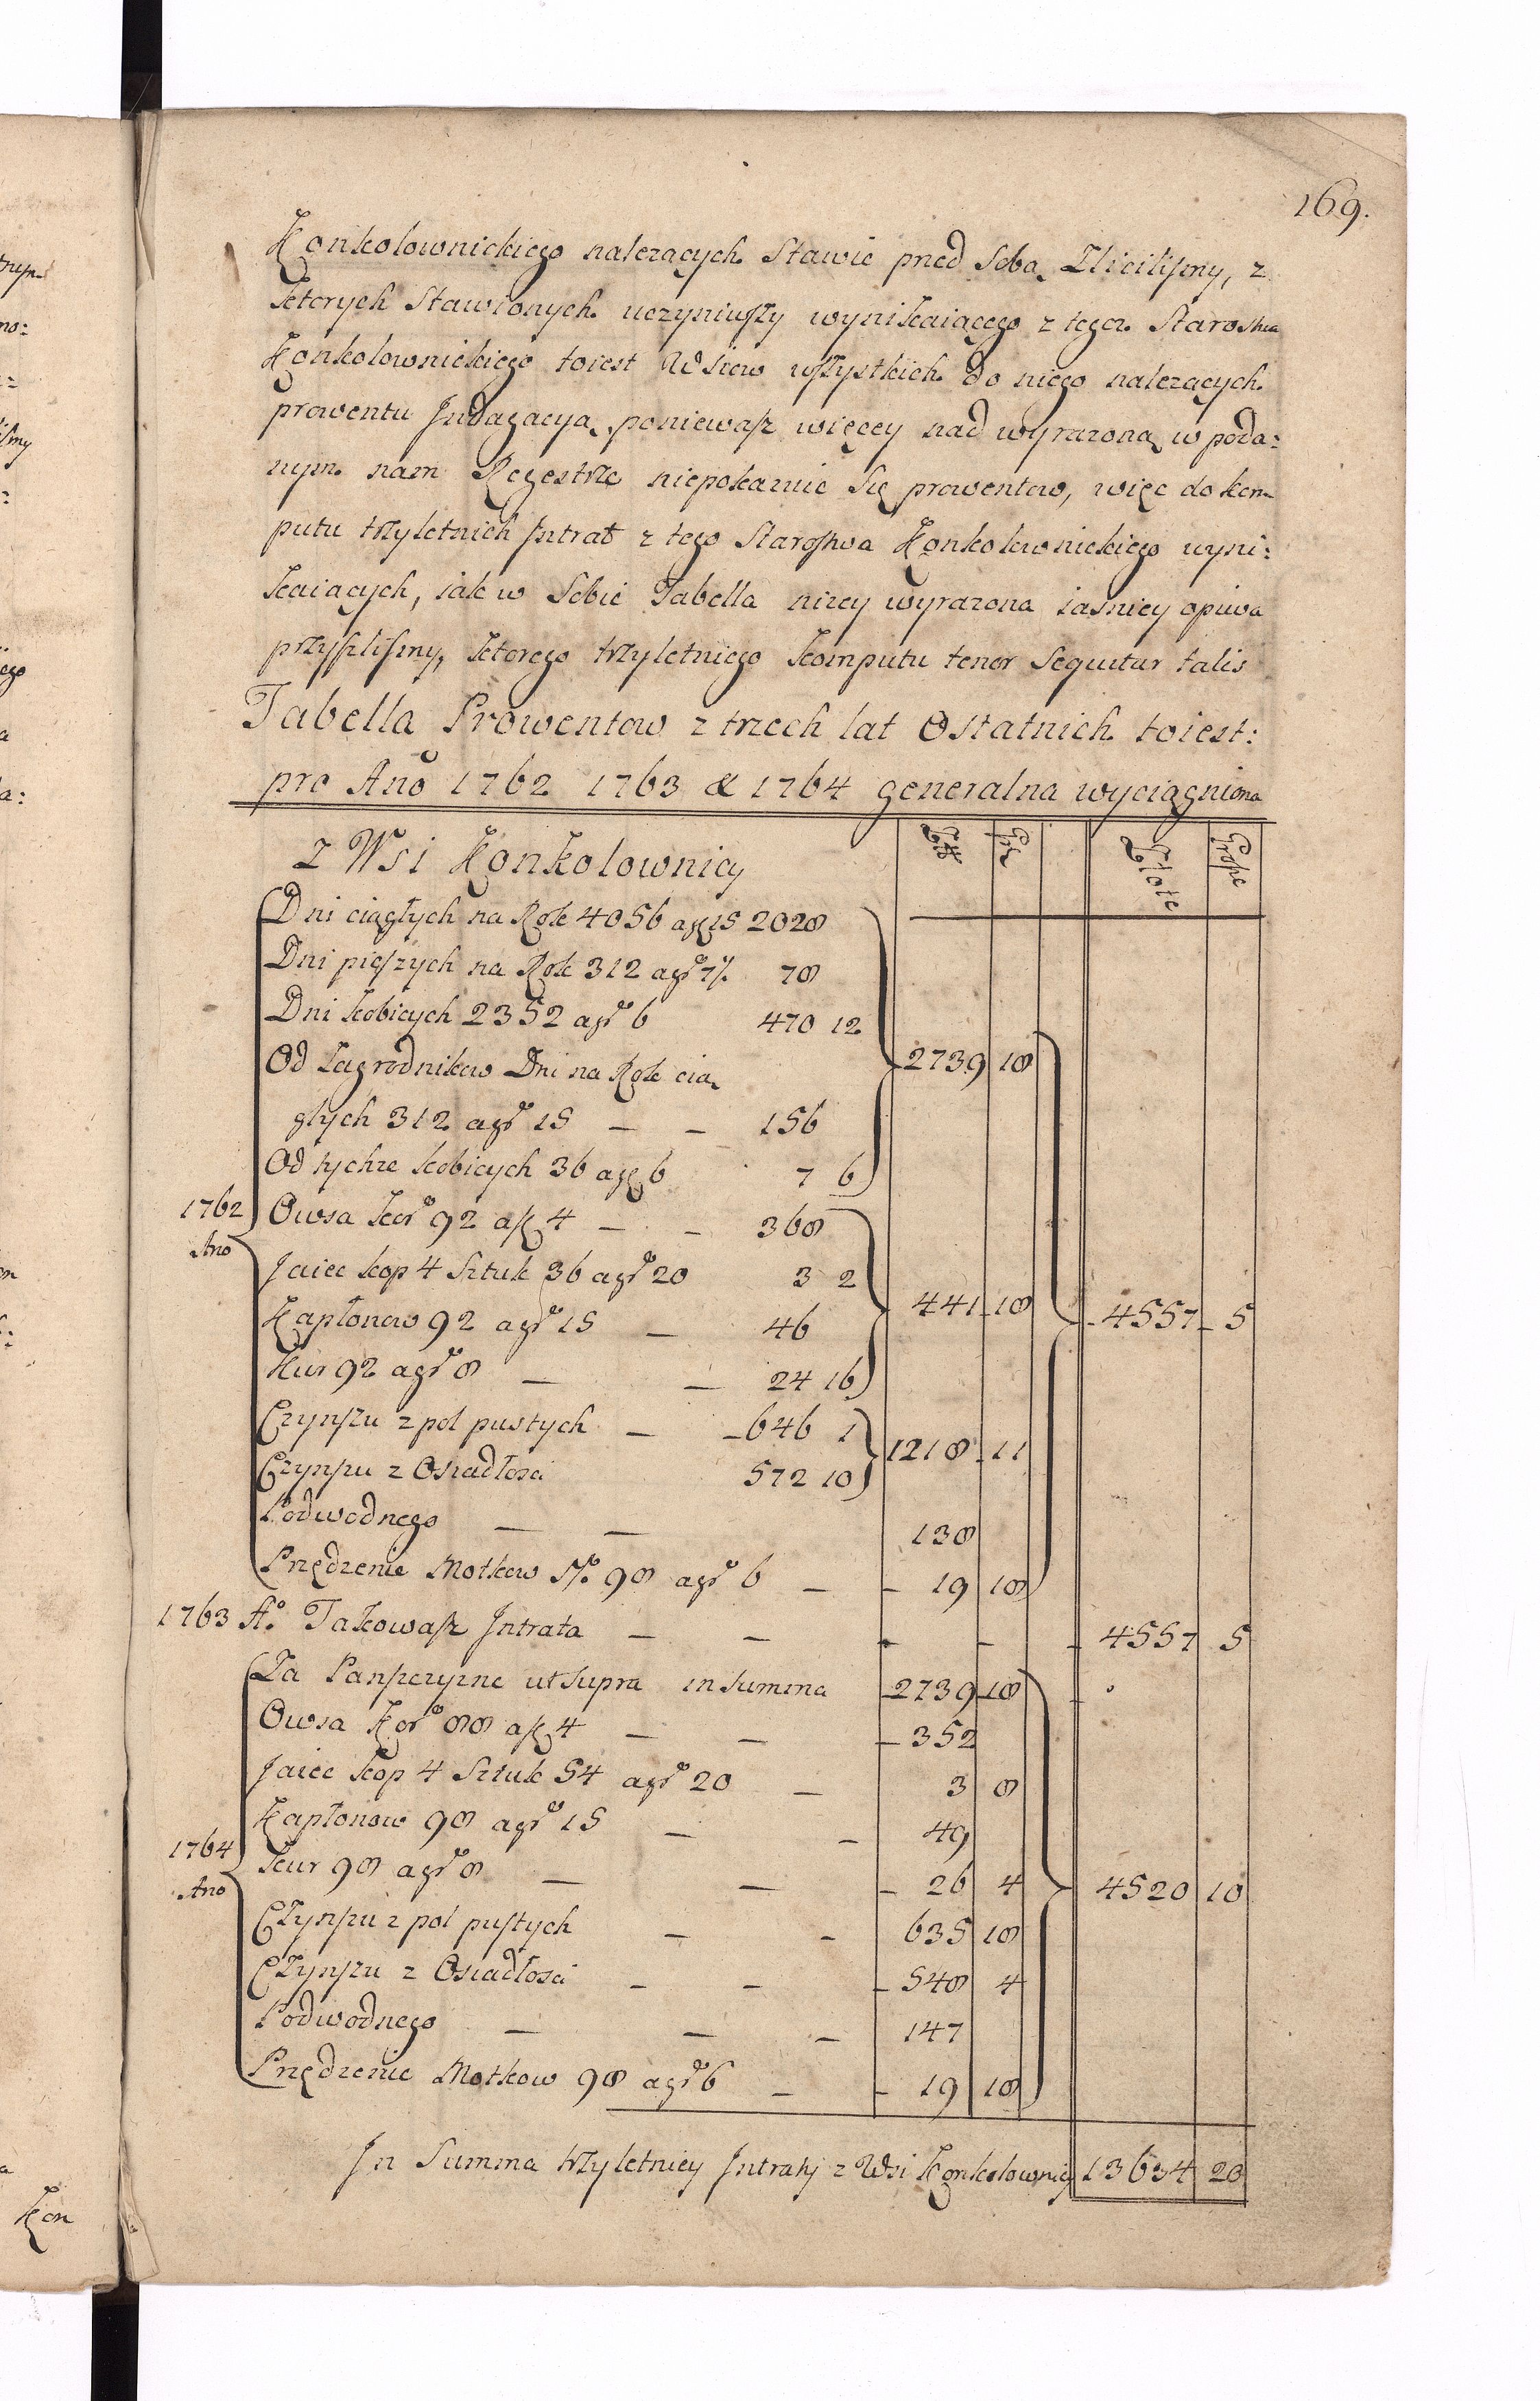 169.
Konkolownickiego należących Stawic przed Sobą Zliciliśmy, z
ktorych Stawionych uczyniwszy wynikaiącego z tegoż Starostwa
Konkolownickiego toiest Wsiow wszystkich do niego należących
prowentu Indagacyą, poniewasz więcey nad wyrażoną w poda:
nym nam Regestrze niepokazuie Się prowentow, więc do kom
putu trzyletnich Intrat z tego Starostwa Konkolownickiego wyni:
kaiących, iak w Sobie Tabella niżey wyrażona iaśniey opiwa
przyszliśmy, ktorego trzyletniego komputu tenor sequitur talis
Tabella Prowentow z trzech lat Ostatnich toiest:
pro Ano 1762 1763 & 1764 generalna wyciągniona
Z Wsi Konkolownicy Złł Gr Złote Grosze
Dni ciągłych na Rok 4056 a gr 15 2028
Dni pieszych na Rok 312 a gr 7½ 78
Dni kobicych 2352 a gr 6 470 12
Od Zagrodnikow Dni na Rok cią 2739 18
głych 312 a gr 15 – – 156
Od tychże kobicych 36 a gr 6 7 6
1762 Ano
Owsa kor 92 a zł 4 – – 368
Jaiec kop 4 Sztuk 36 a gr 20 3 2
441 18 4557 5
Kapłonow 92 a gr 15 – 46
Kur 92 a gr 8 – – 24 16
Czynszu z pol pustych – – 646 1
1218 11
Czynszu z Osiadłosci 572 10
Podwodnego – – 138
Przędzenie Motkow No 98 a gr 6 – – 19 18
1763 Ao Takowasz Intrata – – – – – 4557 5
Za Panszczyznę ut supra in summa 2739 18
Owsa Kor 88 a zł 4 – – – 352
Jaiec kop 4 Sztuk 54 a gr 20 – 3 8
Kapłonow 98 a gr 15 – – 49
1764 Ano
kur 98 a gr 8 – – – 26 4
4520 10
Czynszu z pol pustych – – 635 18
Czynszu z Osiadłosci – – – 548 4
Podwodnego – – – 147
Przędzenie Motkow 98 a gr 6 – – 19 18
In Summa trzyletniey Intraty z Wsi Konkolownicy 13634 20
Kon